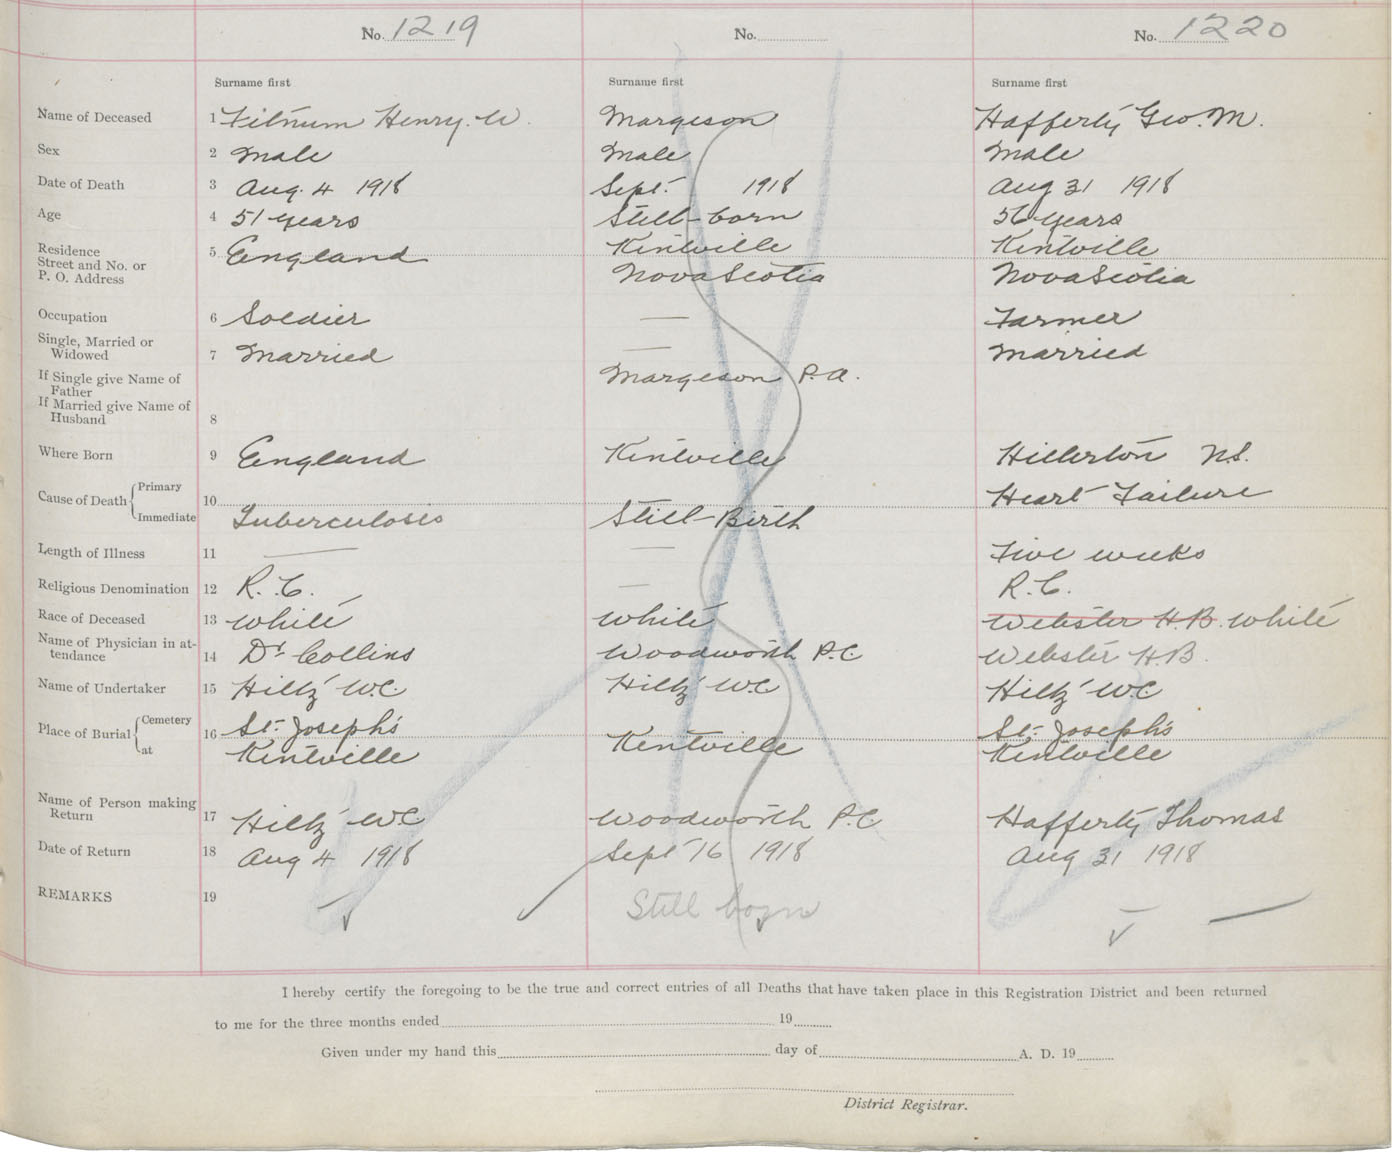 No. 1219 No. No. 1220
Surname first Surname first Surname first
Name of Deceased 1 Henry. W. Margeson Hafferty Geo. M.
Sex 2 Male Male Male
Date of Death 3 Aug. 4 1918 Sept. 1918 Aug 31 1918
Age 4 51 years Still-born 56 years
Residence
Street and No. or
P. O. Address 5 England Kentville Kentville
Nova Scotia Nova Scotia
Occupation 6 Soldier — Farmer
Single, Married or
Widowed 7 Married — Married
If Single give Name of
Father Margeson P. A.
If Married give Name of
Husband 8
Where Born 9 England Kentville N.S.
Cause of Death Primary 10 Heart Failure
Immediate Tuberculosis Still-Birth
Length of Illness 11 — — Five weeks
Religious Denomination 12 R. C. — R. C.
Race of Deceased 13 White White Webster H.B. White
Name of Physician in at-
tendance 14 Dr. Collins Woodworth P.C Webster H.B.
Name of Undertaker 15 Hiltz W.C. Hiltz W.C Hiltz W.C
Place of Burial Cemetery 16 St. Joseph's St. Joseph's
at Kentville Kentville Kentville
Name of Person making
Return 17 Hiltz W.C Woodworth P.C Hafferty Thomas
Date of Return 18 Aug 4 1918 Sept 16 1918 Aug 31 1918
REMARKS 19 Still born
I hereby certify the foregoing to be the true and correct entries of all Deaths that have taken place in this Registration District and been returned
to me for the three months ended 19
Given under my hand this day of A. D. 19
District Registrar.